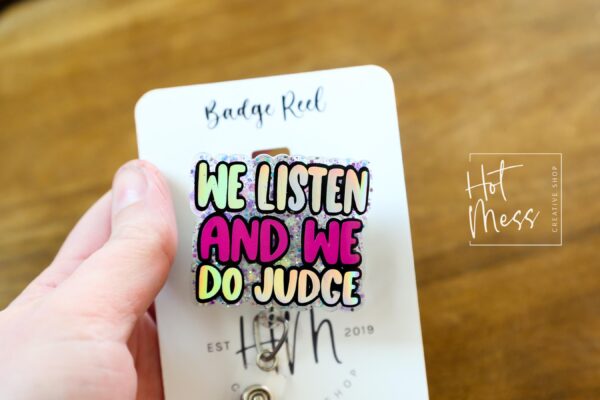 Badge Reel
WE LISTEN
AND WE
DO JUDGE
EST
2019
SHOP
Hot
Mess
CREATIVE SHOP